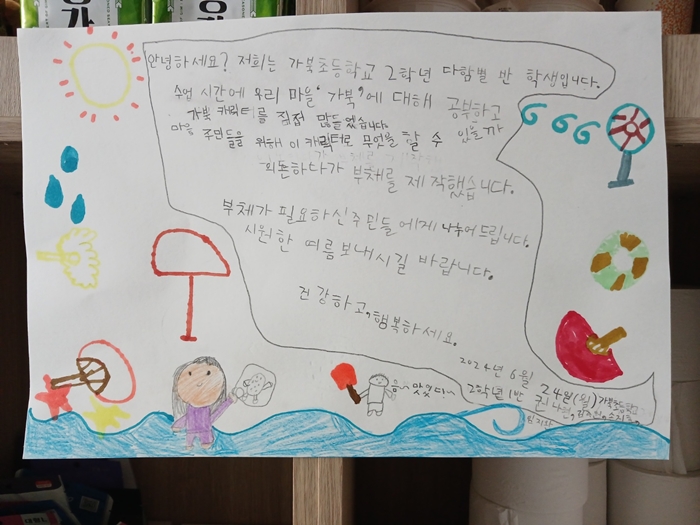 안녕하세요? 저희는 가북초등학교 2학년 다함별 반 학생입니다.
수업 시간에 우리 마을 '가북'에 대해 공부하고
가북 캐릭터를 직접 만들었습니다.
마을 주민들을 위해 이 캐릭터로 무엇을 할 수 있을까
의논하다가 부채를 제작했습니다.
부채가 필요하신 주민들에게 나누어 드립니다.
시원한 여름 보내시길 바랍니다.
건강하고, 행복하세요.
2024년 6월 24일(월) 가북초등학교
2학년 1반
음~ 맛있다!~